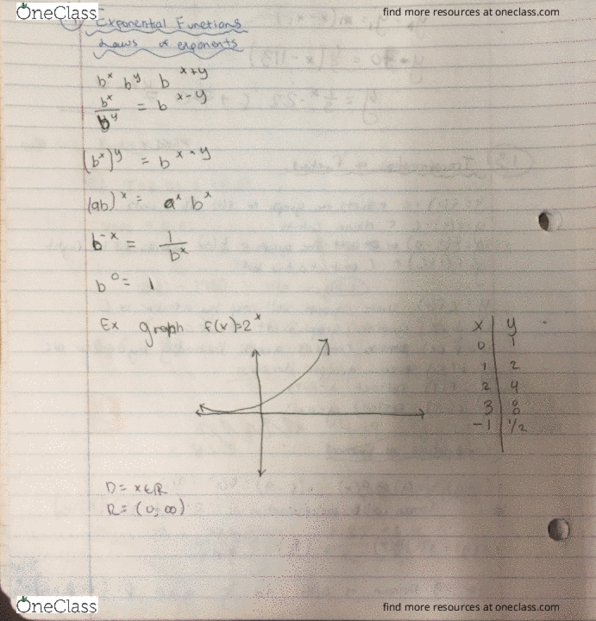 OneClass
find more resources at oneclass.com
Exponential Functions
Laws of exponents
b^x b^y b^x+y
b^x/b^y = b^x-y
(b^x)^y = b^x·y
(ab)^x = a^x · b^x
b^-x = 1/b^x
b^0 = 1
Ex graph f(x)=2^x
x | y
0 | 1
1 | 2
2 | 4
3 | 8
-1 | 1/2
D = x∈ℝ
R = (0, ∞)
OneClass
find more resources at oneclass.com